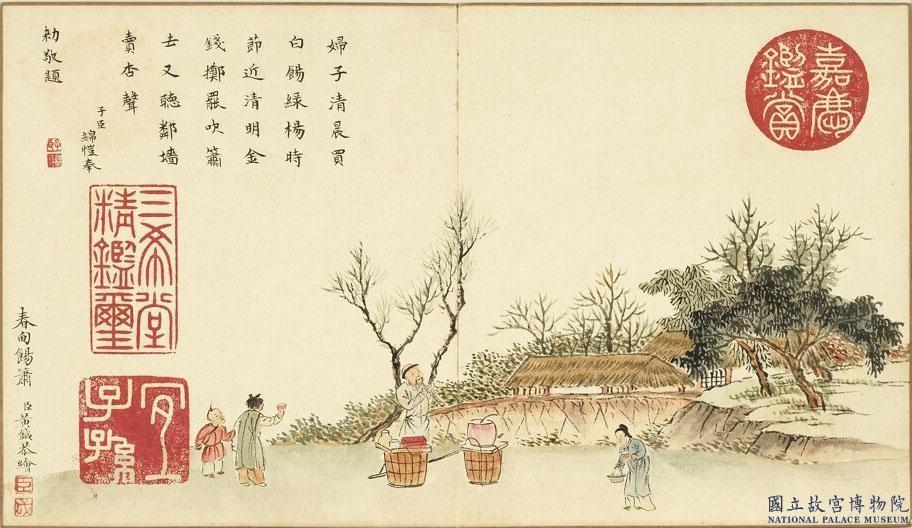 嘉慶鑑賞
婦子清晨買
白餳綠楊時
節近清明金
錢擲罷吹簫
去又聽鄰墻
賣杏聲
子臣綿愷奉
勅敬題
三希堂精鑑璽
宜子孫
春甸餳簫 臣黃鉞恭繪
國立故宮博物院
NATIONAL PALACE MUSEUM